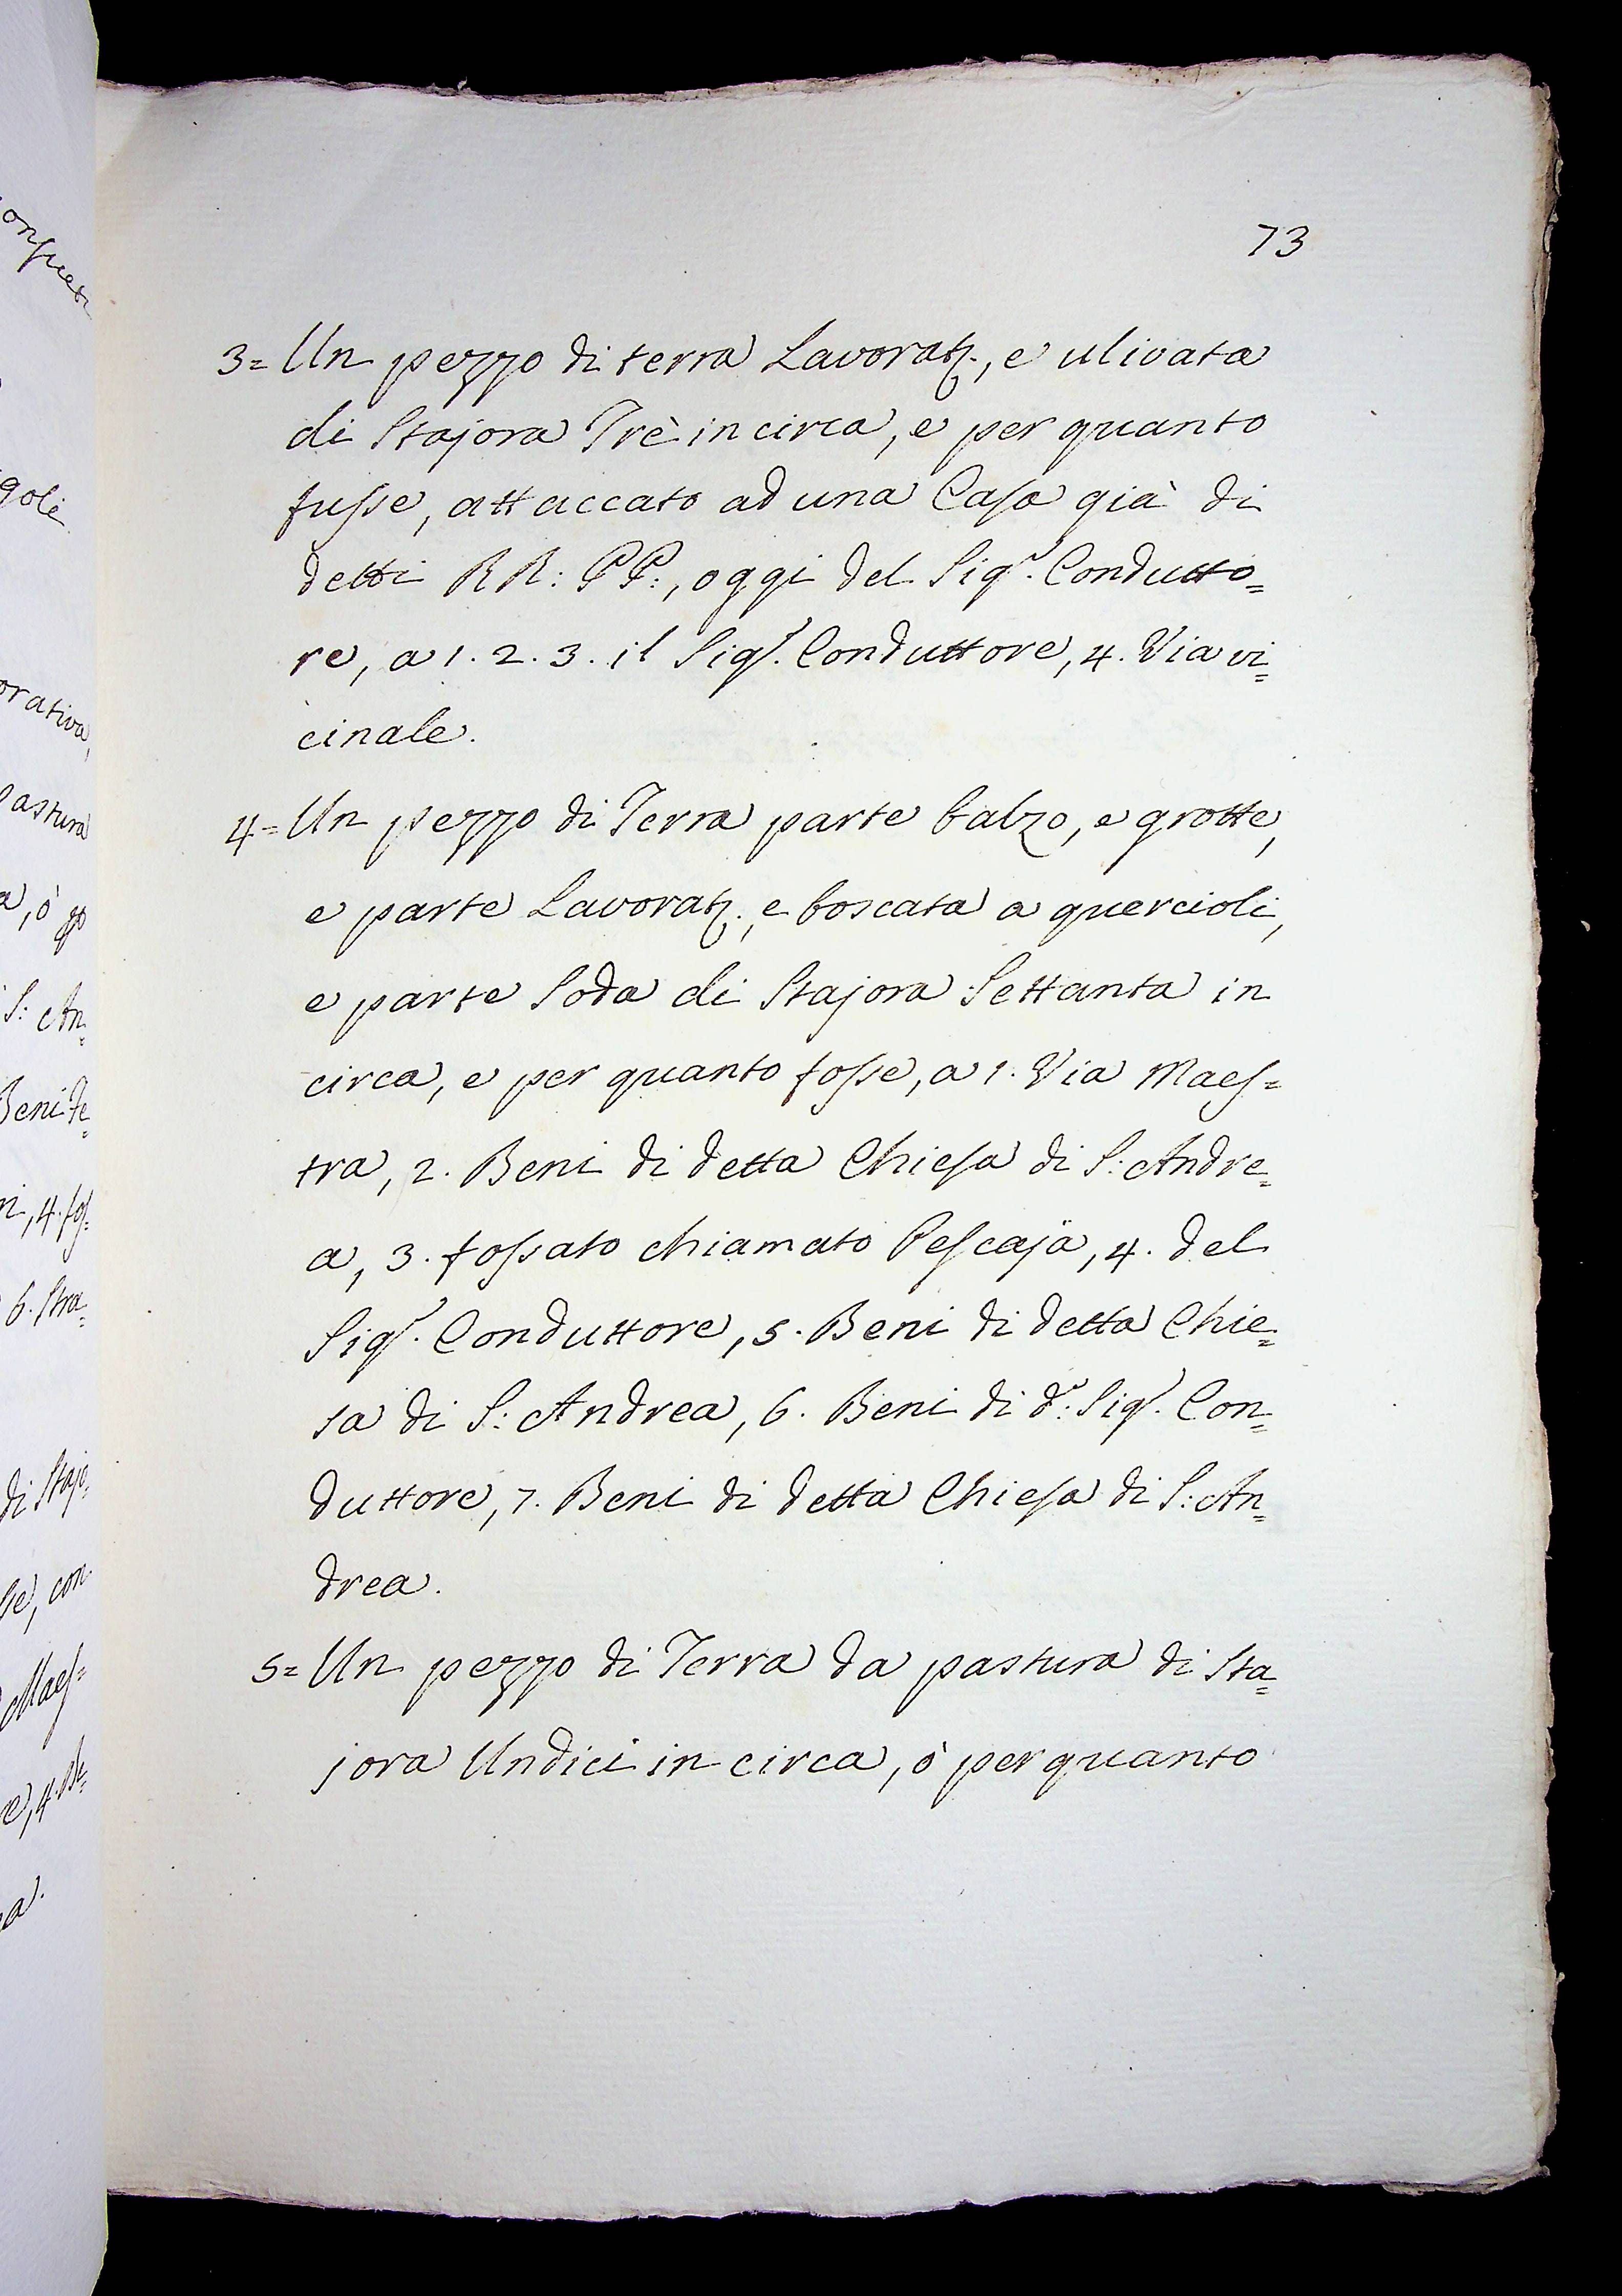 73
3= Un pezzo di terra Lavorat:, e ulivata
di Stajora Trè in circa, e per quanto
fusse, attaccato ad una Casa già di
detti RR: PP:, oggi del Sigr. Condutto=
re, a 1. 2. 3. il Sigr. Conduttore, 4. Via vi=
cinale.
4= Un pezzo di Terra parte balzo, e grotte,
e parte Lavorat:, e boscata a quercioli,
e parte Soda di Stajora Settanta in
circa, e per quanto fosse, a 1. Via Maes=
tra, 2. Beni di detta Chiesa di S: Andre=
a, 3. fossato chiamato Pescaja, 4. del
Sigr. Conduttore, 5. Beni di detta Chie=
sa di S: Andrea, 6. Beni di d.o: Sigr. Con=
duttore, 7. Beni di detta Chiesa di S: An=
drea.
5= Un pezzo di Terra da pastura di Sta=
jora Undici in circa, ò per quanto
goli
orativa,
Pastura
a, ò
S: An=
Beni de=
ni, 4. fos=
6. Stra=
di Stajo=
se, con
Maes=
e, 4. Be=
a.